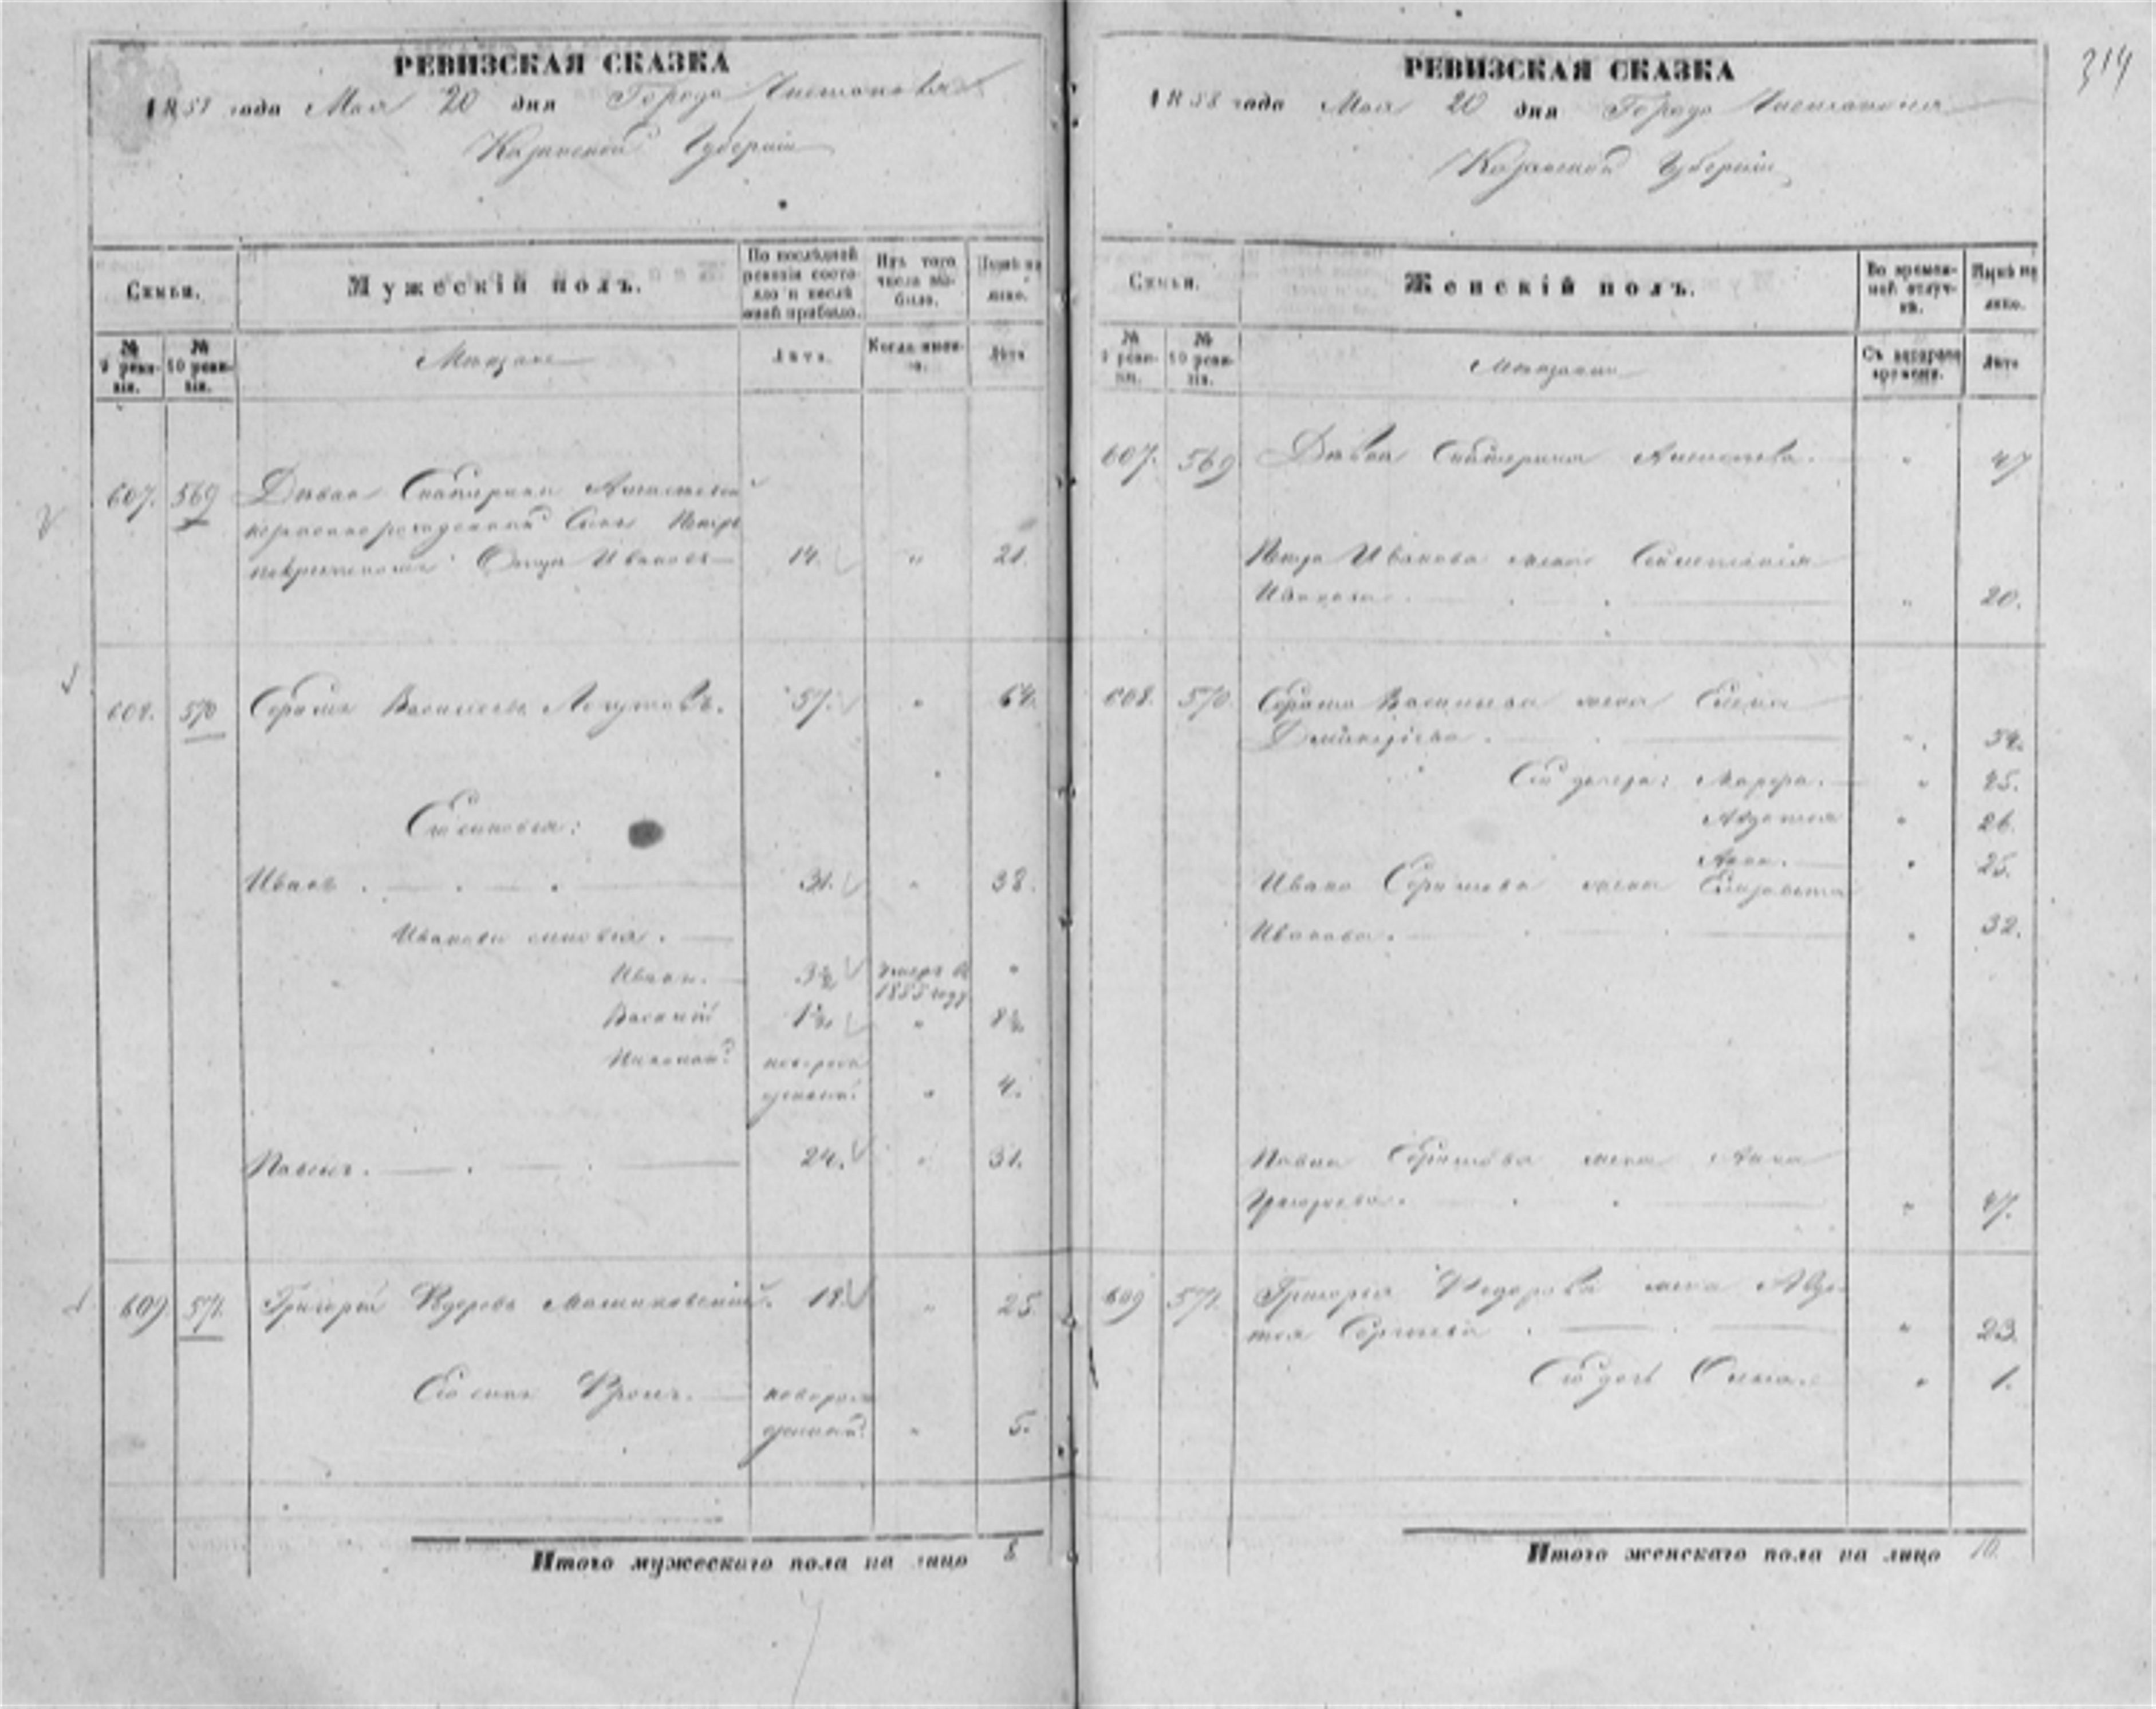 РЕВИЗСКАЯ СКАЗКА
1858 года Мая 20 дня Города Чистополя
Казанской Губернiи
Семьи.
Мужескiй полъ.
По послѣдней ревизiи состояло и послѣ оной прибыло.
Изъ того числа выбыло.
Нынѣ на лицо.
№ 9 ревизiи.
№ 10 ревизiи.
Мѣщане
Лѣта.
Когда именно.
Лѣта
607. 569 Дѣвки Екатерины Алексѣевой
незаконнорожденный Сынъ Петръ
по крестному Отцу Ивановъ 14. " 21.
608. 570 Васильевъ 57. " 64.
Его сыновья:
Иванъ. 31. " 38.
Ивановы сыновья.
Иванъ. 3½ умеръ въ 1855 году "
Василiй 1½ " 8½
Николай новорожденный. " 4.
Павелъ. 24. " 31.
609 571. Григорiй Федоровъ 18. " 25
Его сынъ новорожденный " 5.
Итого мужескаго пола на лицо 8
314
РЕВИЗСКАЯ СКАЗКА
1858 года Мая 20 дня Города Чистополя
Казанской Губернiи
Семьи.
Женскiй полъ.
Во временной отлучкѣ.
Нынѣ на лицо.
№ 9 ревизiи.
№ 10 ревизiи.
Мѣщане
Съ котораго времени.
Лѣта
607. 569 Дѣвка Екатерина Алексѣева. " 47
Петра Иванова жена
Иванова. " 20.
608. 570. Васильева жена Елена
Дмитрiева. " 54.
Его дочери: Марфа. "
Авдотья " 26.
Анна. " 25.
Ивана жена Елизавета
Иванова. " 32.
Павла жена Анна
Григорьева. "
609 571. Григорья Федорова жена Авдо-
тья Сергѣева " 23.
Его дочь Елена. " 1.
Итого женскаго пола на лицо 10.